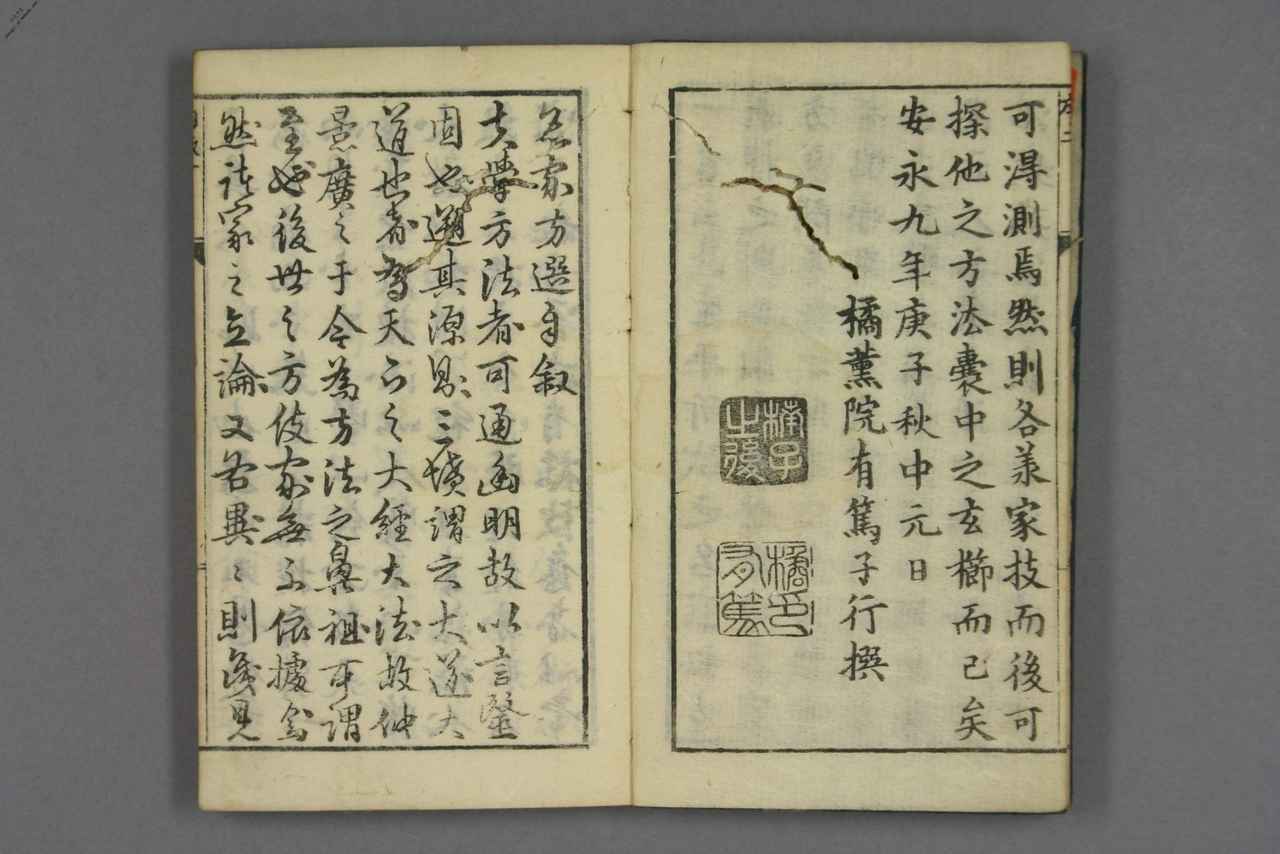 可淂測焉然則各羙家技而後可
探他之方法囊中之玄櫛而已矣
安永九年庚子秋中元日
橘薫院有篤子行撰
橘印有篤
名家方選自叙
夫學方法者可通幽明故以言毉
固也遡其源則三墳謂之大遂大
道也者為天下之大經大法故仲
景廣之于今為方法之鼻祖可謂
至也後世之方伎家無不依據焉
然諸家之立論又各異〻則淺見